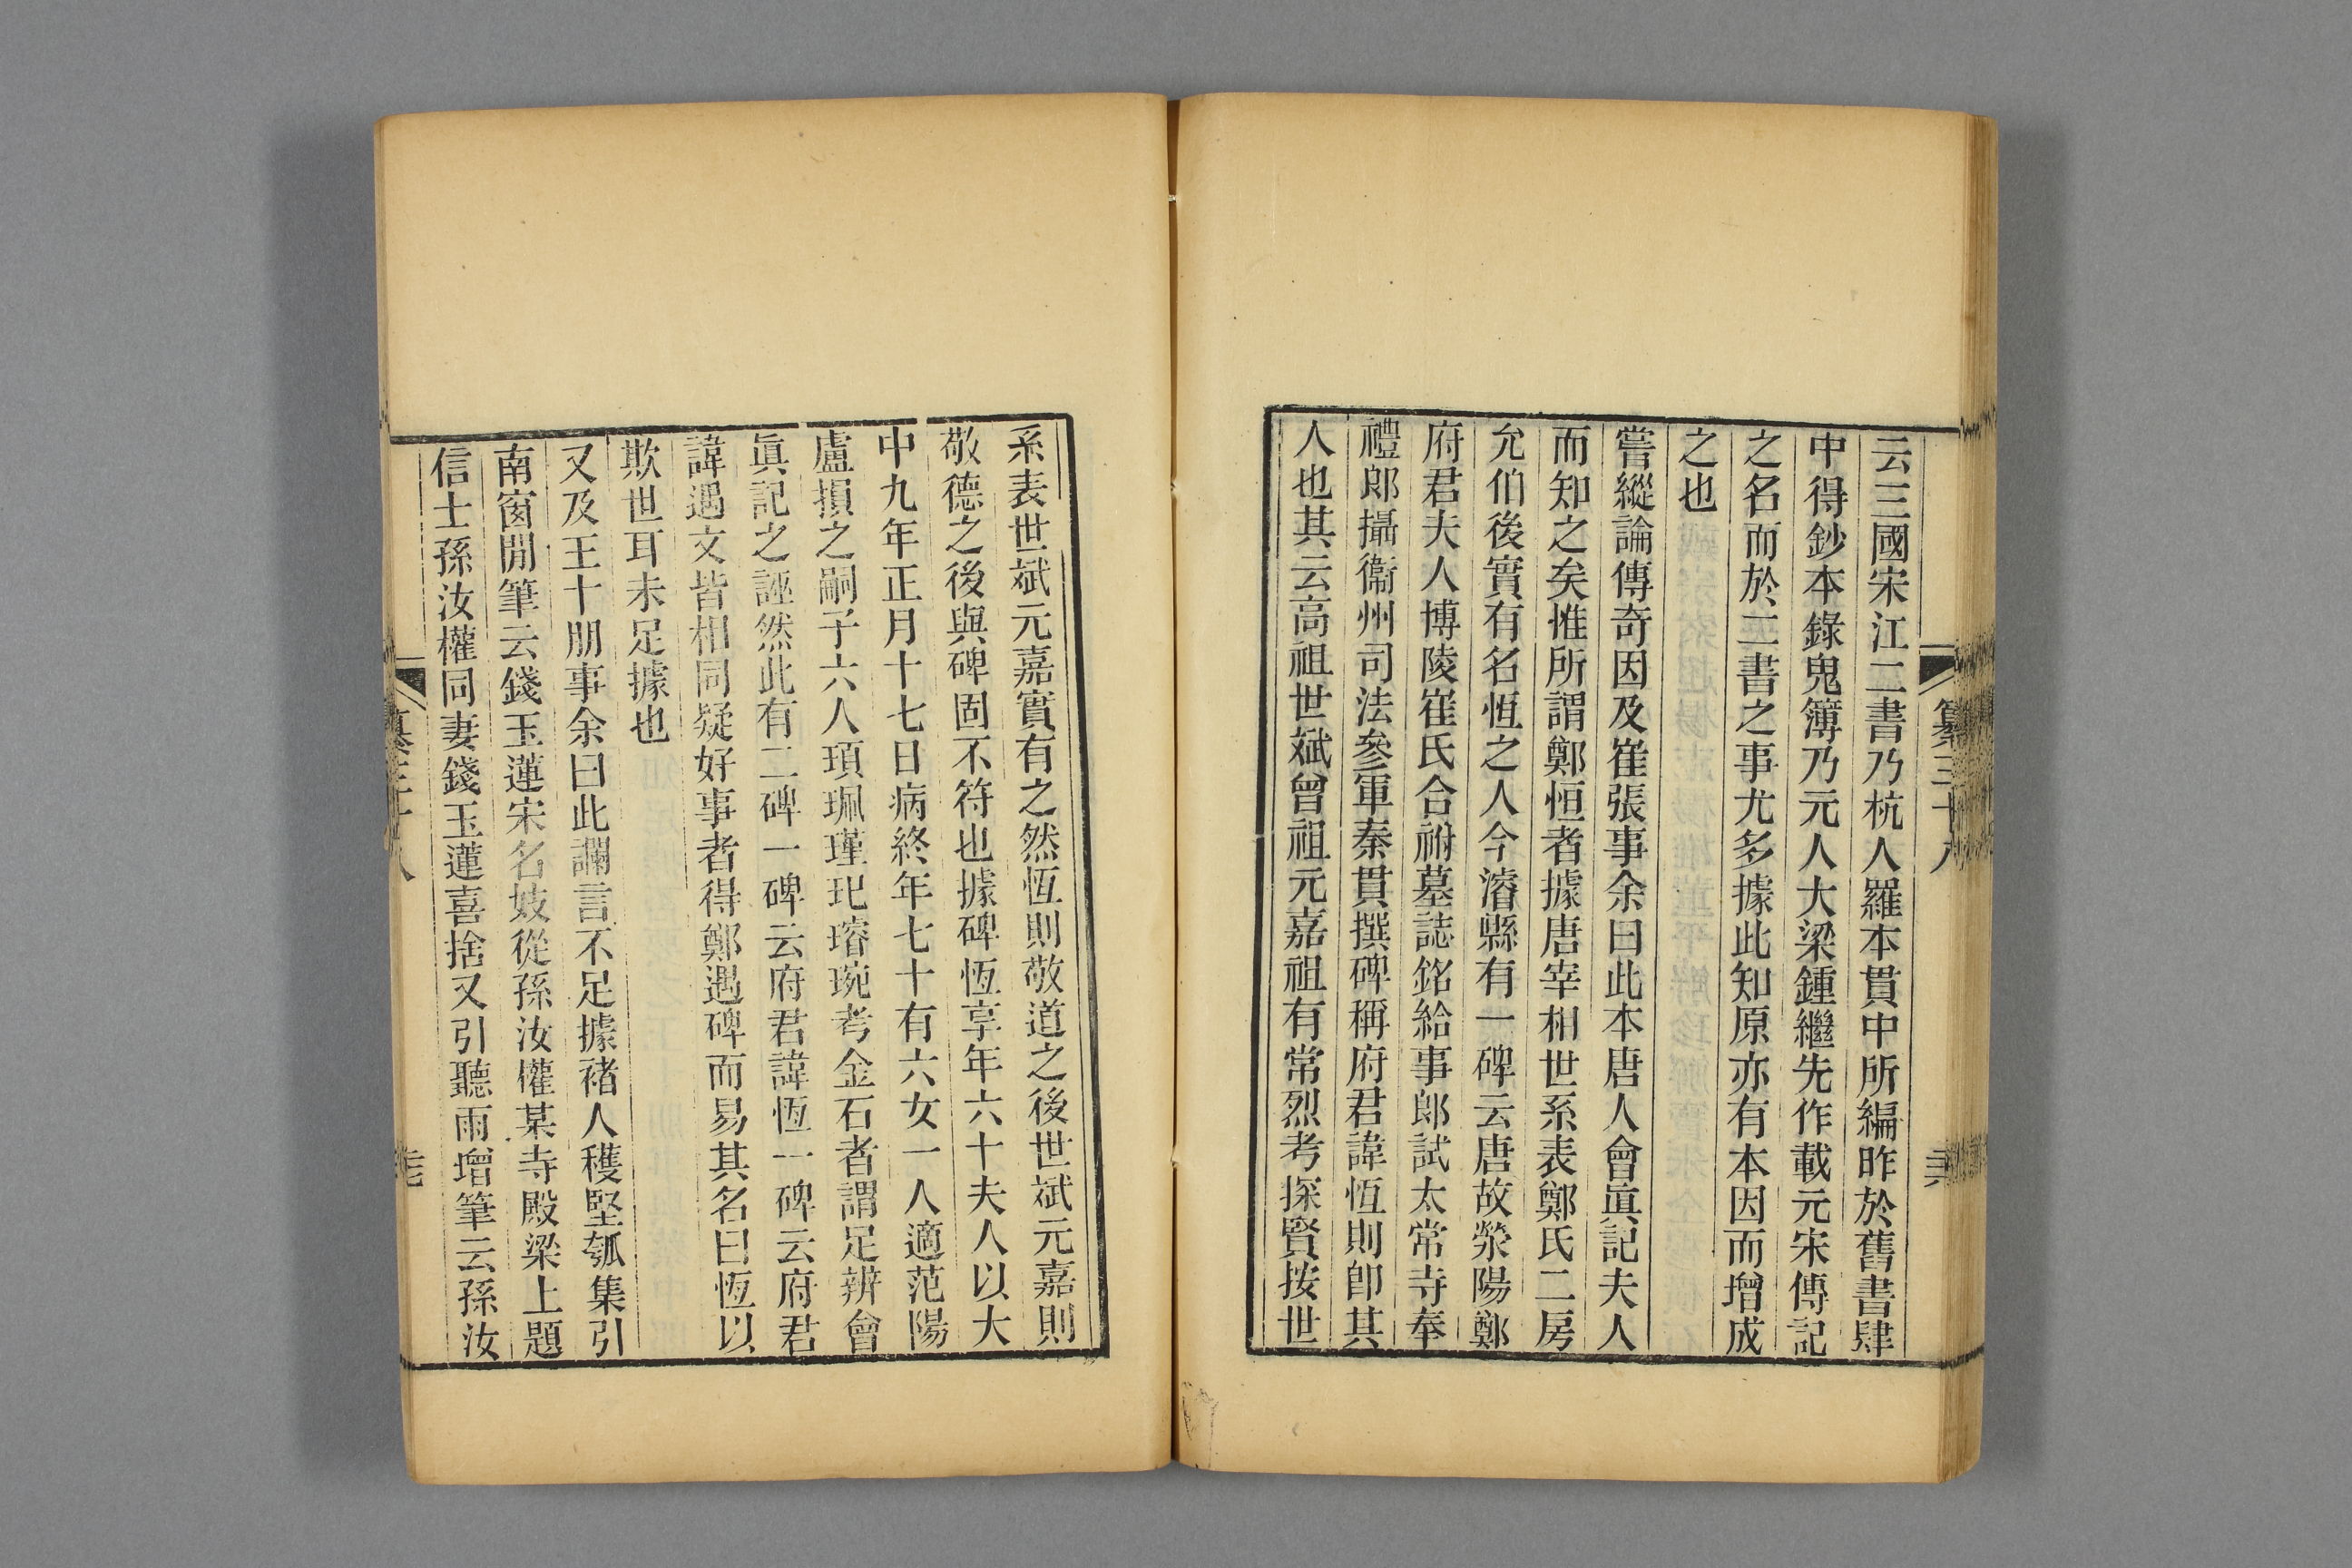 云三國宋江二書乃杭人羅本貫中所編昨於舊書肆
中得鈔本錄鬼簿乃元人大梁鍾繼先作載元宋傳記
之名而於二書之事尤多據此知原亦有本因而增成
之也
嘗縱論傳奇因及崔張事余曰此本唐人會眞記夫人
而知之矣惟所謂鄭恒者據唐宰相世系表鄭氏二房
允伯後實有名恆之人今濬縣有一碑云唐故滎陽鄭
府君夫人博陵崔氏合祔墓誌銘給事郎試太常寺奉
禮郎攝衞州司法參軍秦貫撰碑稱府君諱恆則卽其
人也其云高祖世斌曾祖元嘉祖有常烈考探賢按世
系表世斌元嘉實有之然恆則敬道之後世斌元嘉則
敬德之後與碑固不符也據碑恆享年六十夫人以大
中九年正月十七日病終年七十有六女一人適范陽
盧損之嗣子六人頊珮瑾玘璿琬考金石者謂足辨會
眞記之誣然此有二碑一碑云府君諱恆一碑云府君
諱遇文皆相同疑好事者得鄭遇碑而易其名曰恆以
欺世耳未足據也
又及王十朋事余曰此讕言不足據褚人穫堅瓠集引
南窗閒筆云錢玉蓮宋名妓從孫汝權某寺殿梁上題
信士孫汝權同妻錢玉蓮喜捨又引聽雨增筆云孫汝
纂三十八